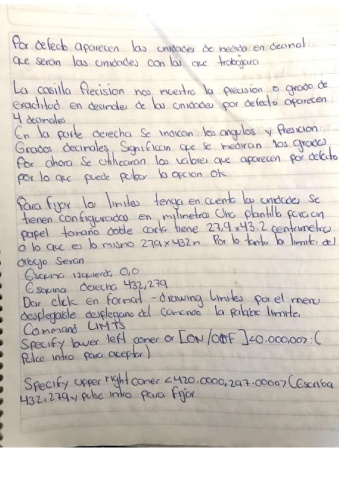 Por defecto aparecen las unidades de medida en decimal
que seran las unidades con las que trabajara
La casilla Precision nos muestra la precision o grado de
exactitud en decimales de las unidades por defecto aparecen
4 decimales
En la parte derecha se indican los angulos y Precision
Grados decimales, Significan que se mediran los grados
Por ahora Se utilizaran los valores que aparecen por defecto
por lo que puede pulsar la opcion ok
Para fijar los limites tenga en cuenta las unidades se
tienen configuradas en milimetros Una plantilla para un
papel tamaño doble carta tiene 27,9 x 43.2 centimetros
o lo que es lo mismo 279 x 432 m. Por lo tanto los limites del
dibujo Seran
Esquina izquierda 0,0
Esquina derecha 432,279
Dar click en format - drawing Limits por el menu
desplegable desplegano del Comando la palabra limits.
Command LIMTS
Specify lower left corner or [ON/OFF] <0.000,00>: (
Pulse intro para aceptar)
Specify upper right corner <420.0000,297.0000> (Escriba
432,279 y pulse intro para fijar